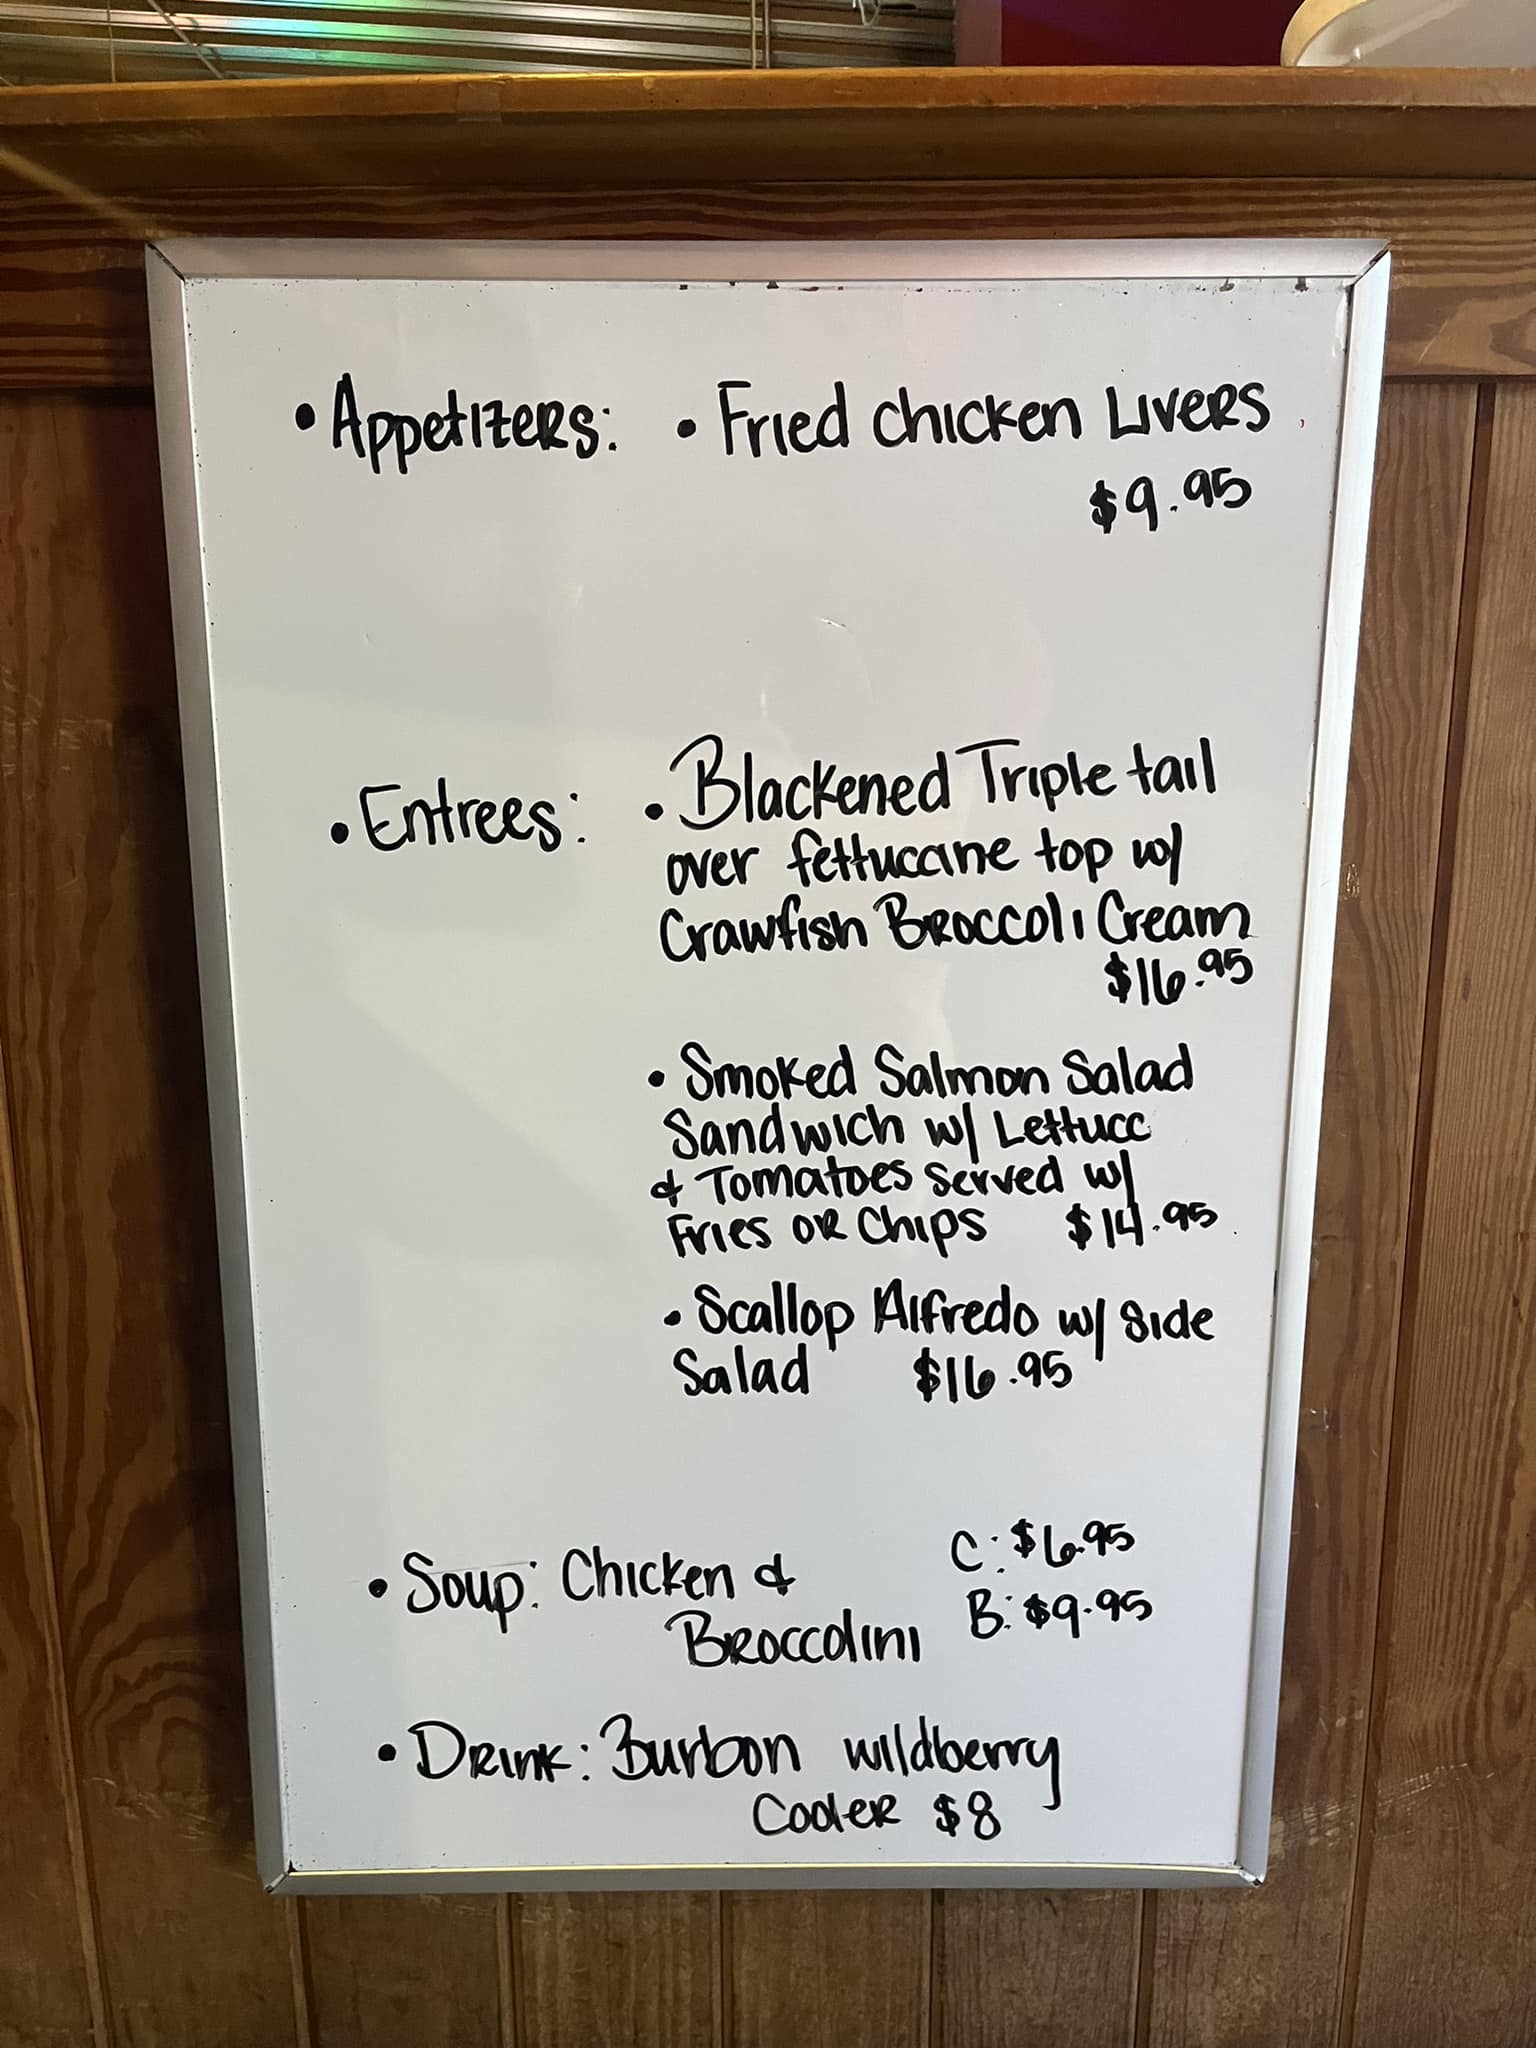 • Appetizers: • Fried Chicken Livers
$9.95
• Entrees: • Blackened Triple tail
over fettuccine top w/
Crawfish Broccoli Cream
$16.95
• Smoked Salmon Salad
Sandwich w/ Lettucc
& Tomatoes served w/
Fries or Chips $14.95
• Scallop Alfredo w/ side
Salad $16.95
• Soup: Chicken & C: $6.95
Broccolini B: $9.95
• Drink: Burbon wildberry
Cooler $8